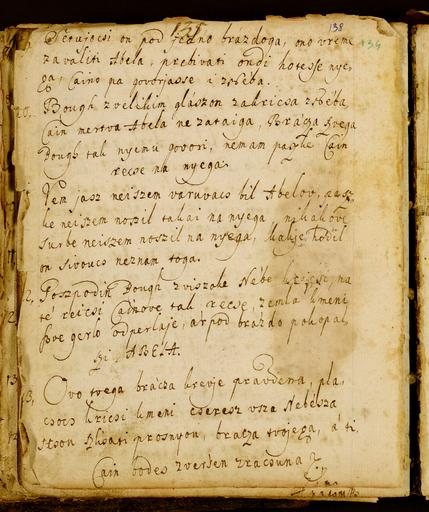 138
134
on pod jedno brazdoga, ono vreme
zavaliti Abela, prebivati ondi hotesse nye,
ga, Caino na govorjasse i
Bough zvelikim glaszon zakricsa
Cain mertva Abela ne zataiga, Bratja szvega
Bough tak nyemu govori, nemam paszke Cain
recse na nyega.
Jem jasz neiszem varuvacs bil Abelov,
ke neiszem noszil takai na nyega, nikakove
surbe neiszem noszil na nyega, kakje hodil
on sivoucs neznam toga.
Goszpodin Bough zviszoke Nebe kricsi, na
te reicsi Cainove tak recse, zemla kmeni
szvoe gerlo odperlaje, ar pod brazdo pokopal,
szi ABELA.
Ovo tvega bratza krvje pravdena, pla,
csocs kricsi kmeni cseresz vsza Nebesza
szlisati prosnyou, bratza tvojega, a ti
Cain bodes zversen